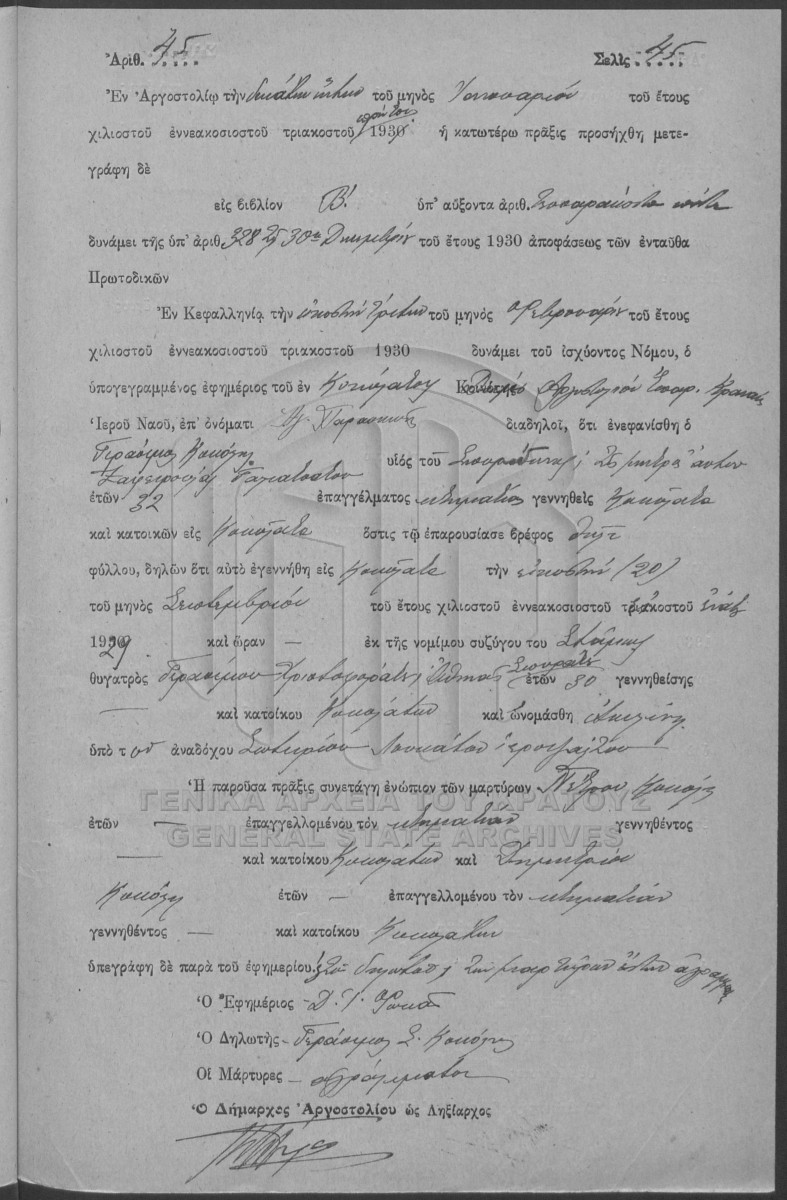 Ἀριθ. 45 Σελὶς 45
Ἐν Ἀργοστολίῳ τὴν δεκάτην ἕκτην τοῦ μηνὸς Ἰανουαρίου τοῦ ἔτους
πρώτου
χιλιοστοῦ ἐννεακοσιοστοῦ τριακοστοῦ 1930 ἡ κατωτέρω πρᾶξις προσήχθη μετε-
γράφη δὲ
εἰς βιβλίον Β! ὑπ' αὔξοντα ἀριθ. Τεσσαράκοντα πέντε
δυνάμει τῆς ὑπ' ἀριθ. 328 30 Δεκεμβρίου τοῦ ἔτους 1930 ἀποφάσεως τῶν ἐνταῦθα
Πρωτοδικῶν
Ἐν Κεφαλληνίᾳ τὴν εἰκοστὴν τρίτην τοῦ μηνὸς Φεβρουαρίου τοῦ ἔτους
χιλιοστοῦ ἐννεακοσιοστοῦ τριακοστοῦ 1930 δυνάμει τοῦ ἰσχύοντος Νόμου, ὁ
ὑπογεγραμμένος ἐφημέριος τοῦ ἐν Κοκολάτοις Κοινότης Δήμου Ἀργοστολίου Ἐπαρ. Κραναίας
Ἱεροῦ Ναοῦ, ἐπ' ὀνόματι Ἁγ. Παρασκευῆς διαδηλοῖ, ὅτι ἐνεφανίσθη ὁ
Γεράσιμος Κοκόλης υἱὸς τοῦ Σπυρίδωνος μητρὸς
ἐτῶν 32 ἐπαγγέλματος κτηματίας γεννηθεὶς Κοκολάτα
καὶ κατοικῶν εἰς Κοκολάτα ὅστις τῷ ἐπαρουσίασε βρέφος θήλυ
φύλλου, δηλῶν ὅτι αὐτὸ ἐγεννήθη εἰς Κοκολάτα τὴν εἰκοστὴν (20)
τοῦ μηνὸς Σεπτεμβρίου τοῦ ἔτους χιλιοστοῦ ἐννεακοσιοστοῦ τριακοστοῦ ἐνάτου
1930 29 καὶ ὥραν — ἐκ τῆς νομίμου συζύγου του Σταμούλας
θυγατρὸς Γερασίμου Χριστοφοράτου Ἀθηνᾶς ἐτῶν 30 γεννηθείσης
— καὶ κατοίκου Κοκολάτων καὶ ὠνομάσθη Ἀγγελίνη
ὑπὸ τοῦ ἀναδόχου Σωτηρίου Λουκάτου ἱεροψάλτου
Ἡ παροῦσα πρᾶξις συνετάγη ἐνώπιον τῶν μαρτύρων Πέτρου Κοκόλη
ΓΕΝΙΚΑ ΑΡΧΕΙΑ ΤΟΥ ΚΡΑΤΟΥΣ
ἐτῶν — ἐπαγγελλομένου τὸν κτηματίαν γεννηθέντος
GENERAL STATE ARCHIVES
— καὶ κατοίκου Κοκολάτων καὶ Δημητρίου
Κοκόλη ἐτῶν — ἐπαγγελλομένου τὸν κτηματίαν
γεννηθέντος — καὶ κατοίκου Κοκολάτων
ὑπεγράφη δὲ παρὰ τοῦ ἐφημερίου, τοῦ δηλωτοῦ τῶν μαρτύρων ὄντων ἀγραμμάτων
Ὁ Ἐφημέριος Δ. Γ. Φωκᾶς
Ὁ Δηλωτὴς Γεράσιμος Σ. Κοκόλης
Οἱ Μάρτυρες ἀγράμματοι
Ὁ Δήμαρχος Ἀργοστολίου ὡς Ληξίαρχος